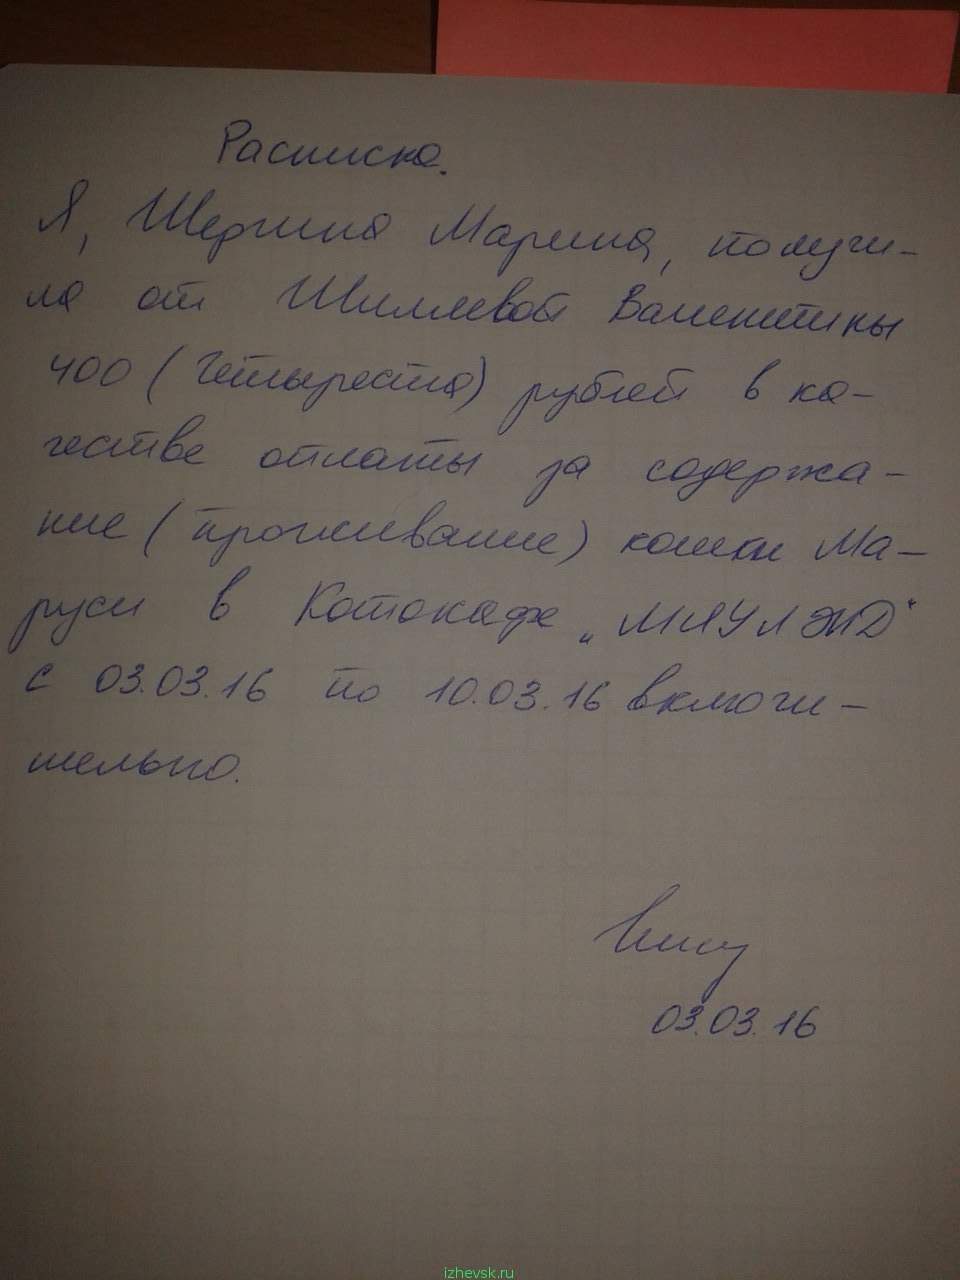 Расписка.
Я, Шергина Марина, получи-
ла от Шиллевой Валентины
400 (Четыреста) рублей в ка-
честве оплаты за содержа-
ние (проживание) кошки Ма-
руси в Котокафе "МЯУЛЭНД"
с 03.03.16 по 10.03.16 включи-
тельно.
03.03.16
izhevsk.ru